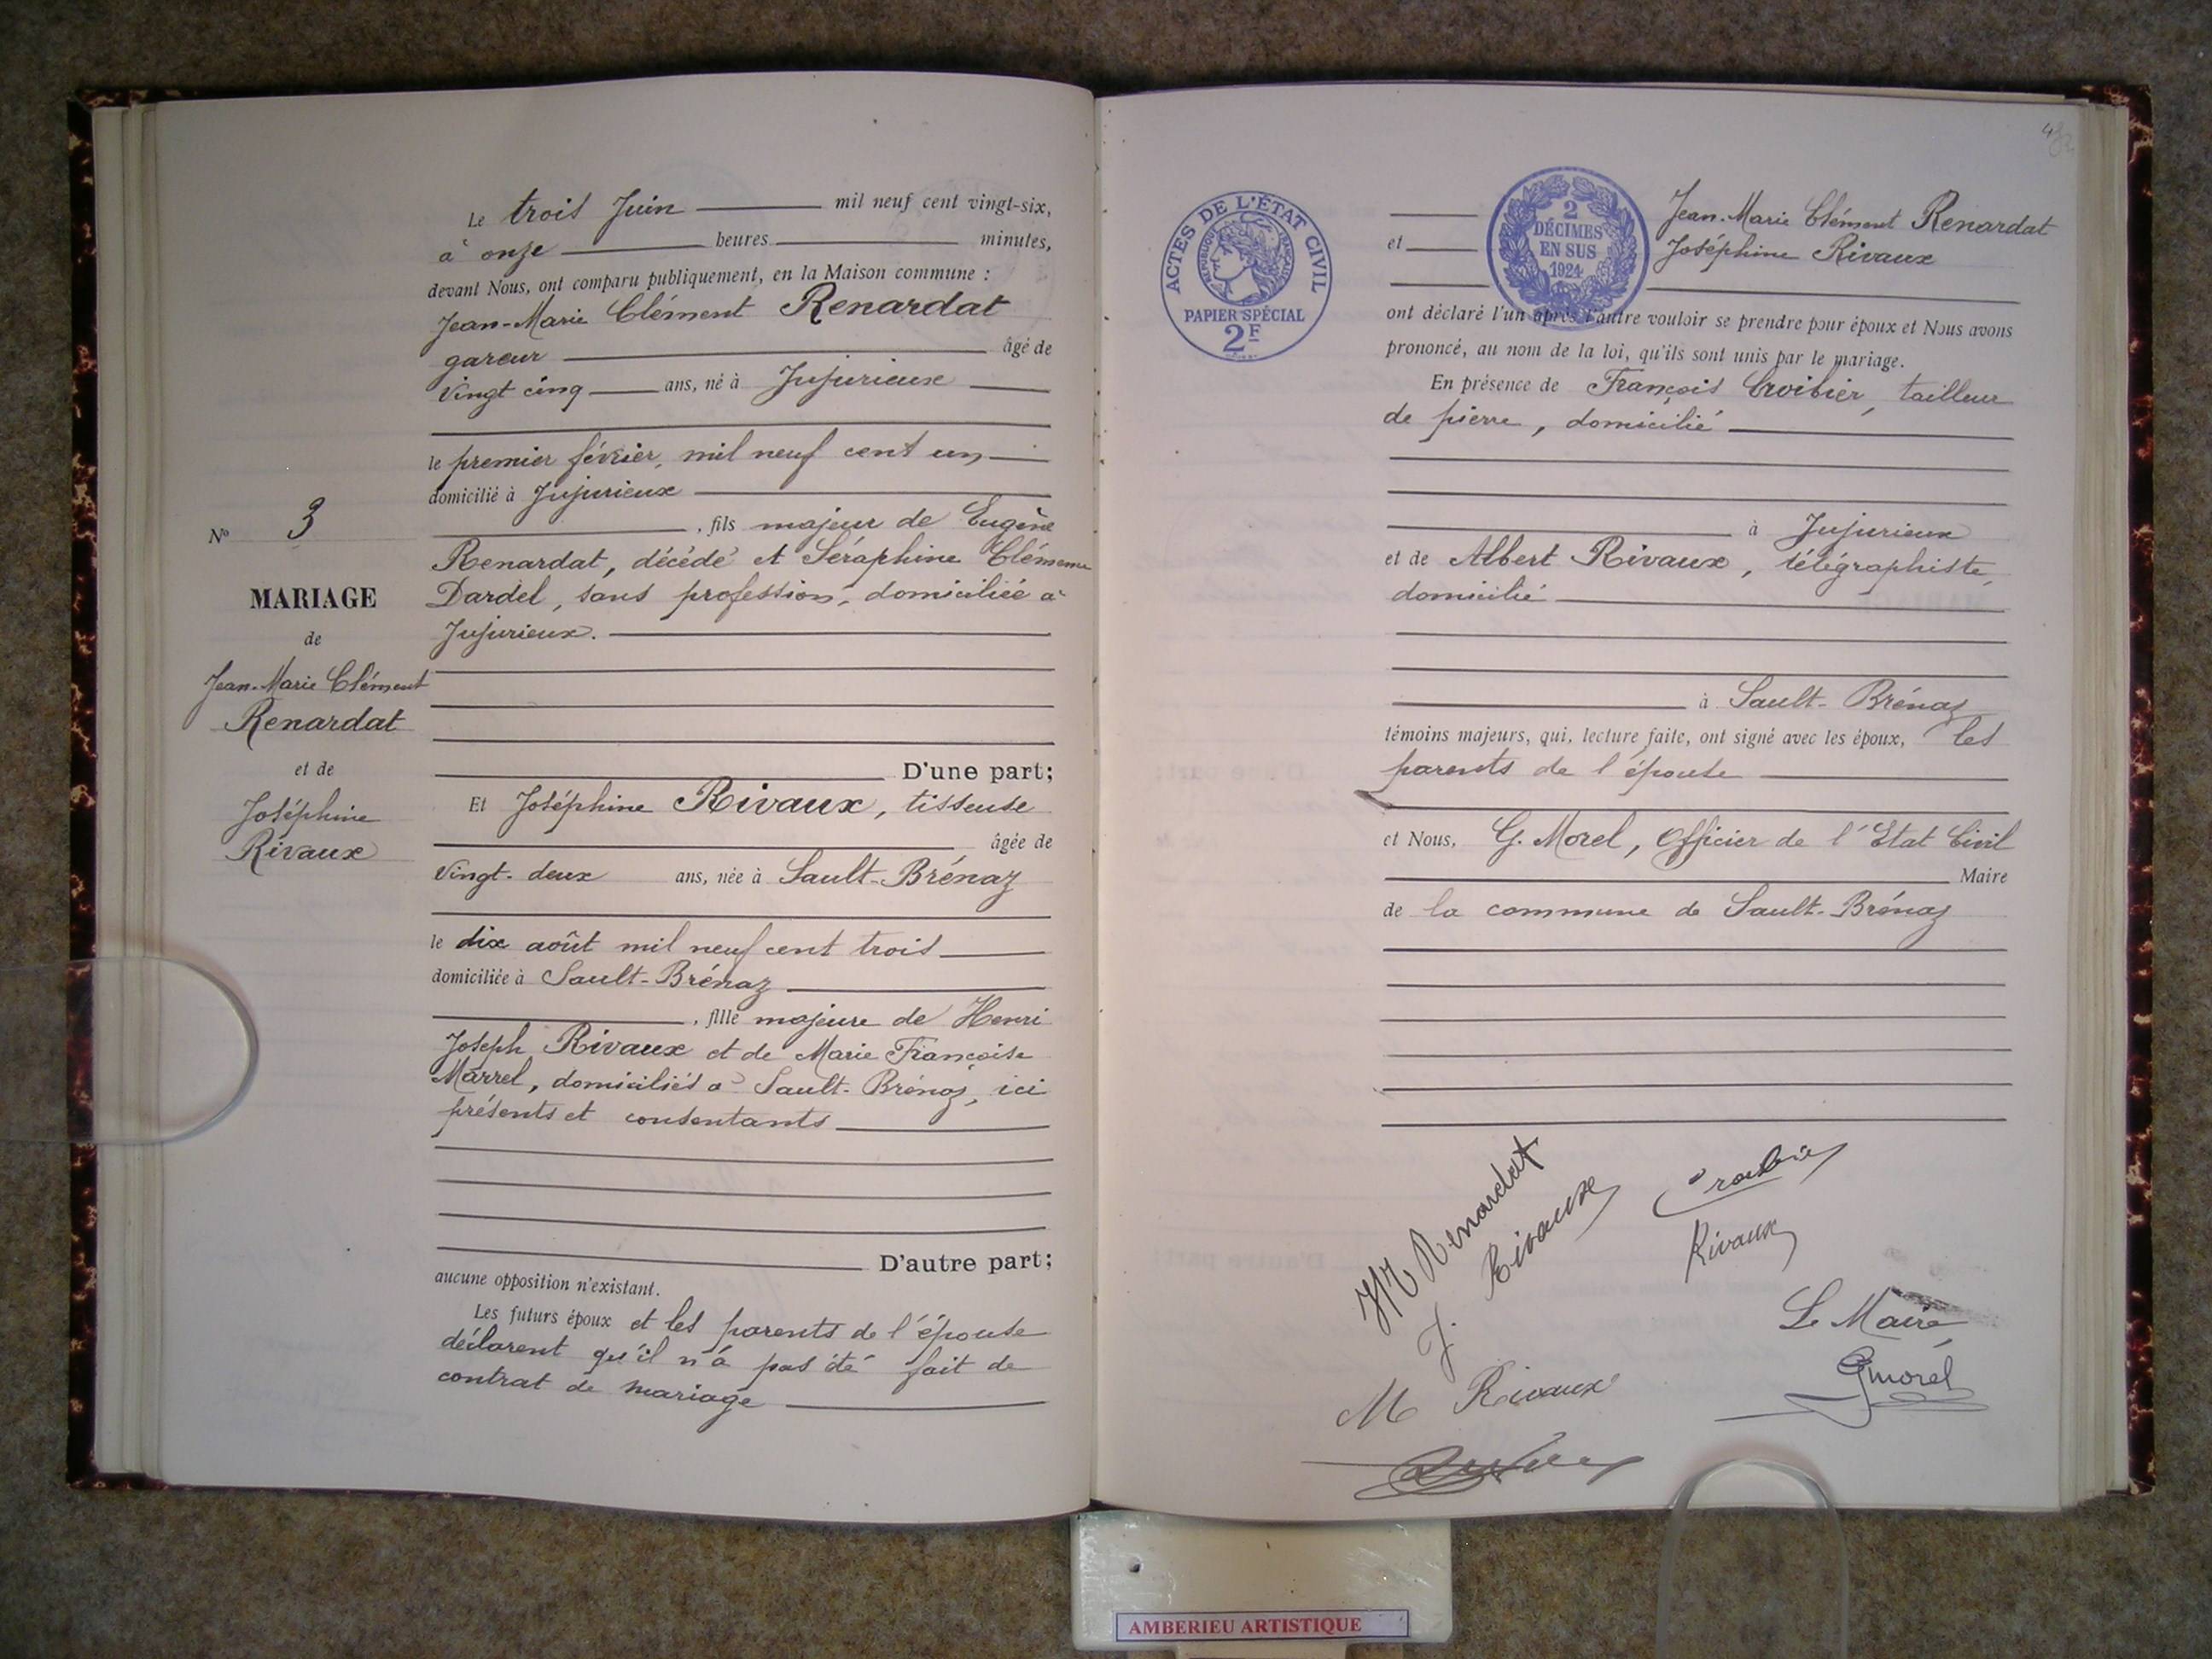 Le trois Juin mil neuf cent vingt-six,
à onze heures minutes,
devant Nous, ont comparu publiquement, en la Maison commune :
Jean-Marie Clément Renardat
gareur âgé de
Vingt cinq ans, né à Jujurieux
le premier février, mil neuf cent un
domicilié à Jujurieux
, fils majeur de Eugène
Renardat, décédé et Séraphine Clémence
Dardel, sans profession, domiciliée à
Jujurieux.
D'une part;
Et Joséphine Rivaux, tisseuse
âgée de
Vingt-deux ans, née à Sault-Brénaz
le dix août mil neuf cent trois
domiciliée à Sault-Brénaz
, fille majeure de Henri
Joseph Rivaux et de Marie Françoise
Marrel, domiciliés à Sault-Brénaz, ici
présents et consentants
D'autre part;
aucune opposition n'existant.
Les futurs époux et les parents de l'épouse
déclarent qu'il n'a pas été fait de
contrat de mariage
Nº 3
MARIAGE
de
Jean-Marie Clément
Renardat
et de
Joséphine
Rivaux
ACTES DE L'ÉTAT CIVIL
RÉPUBLIQUE FRANÇAISE
PAPIER SPÉCIAL
2F
2
DÉCIMES
EN SUS
1924
Jean-Marie Clément Renardat
et Joséphine Rivaux
ont déclaré l'un après l'autre vouloir se prendre pour époux et Nous avons
prononcé, au nom de la loi, qu'ils sont unis par le mariage.
En présence de François Croibier, tailleur
de pierre, domicilié
à Jujurieux
et de Albert Rivaux, télégraphiste,
domicilié
à Sault-Brénaz
témoins majeurs, qui, lecture faite, ont signé avec les époux, les
parents de l'épouse
et Nous, G. Morel, Officier de l'Etat Civil
Maire
de la commune de Sault-Brénaz
Renardat
J. Rivaux
Rivaux
M Rivaux
Le Maire,
GMorel
AMBERIEU ARTISTIQUE